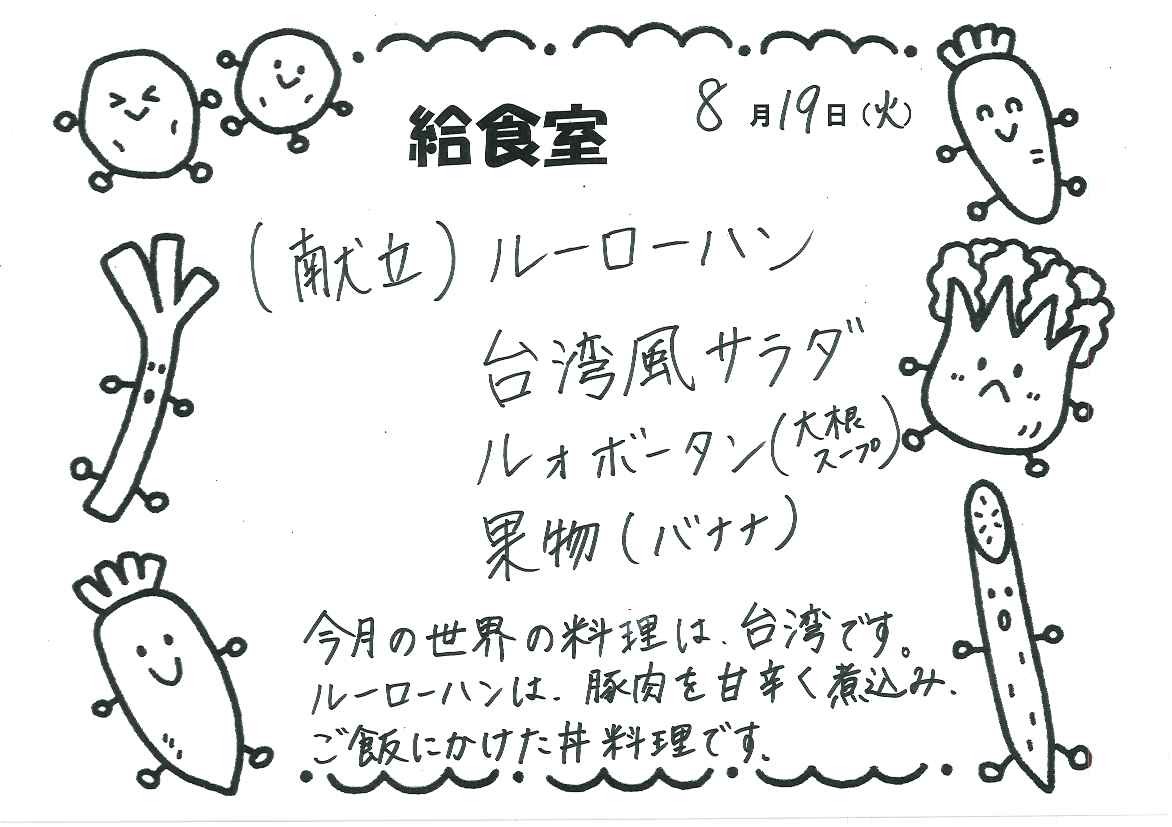 給食室 8月19日(火)
(献立) ルーローハン
台湾風サラダ
ルオボータン(大根スープ)
果物(バナナ)
今月の世界の料理は、台湾です。
ルーローハンは、豚肉を甘辛く煮込み、
ご飯にかけた丼料理です。